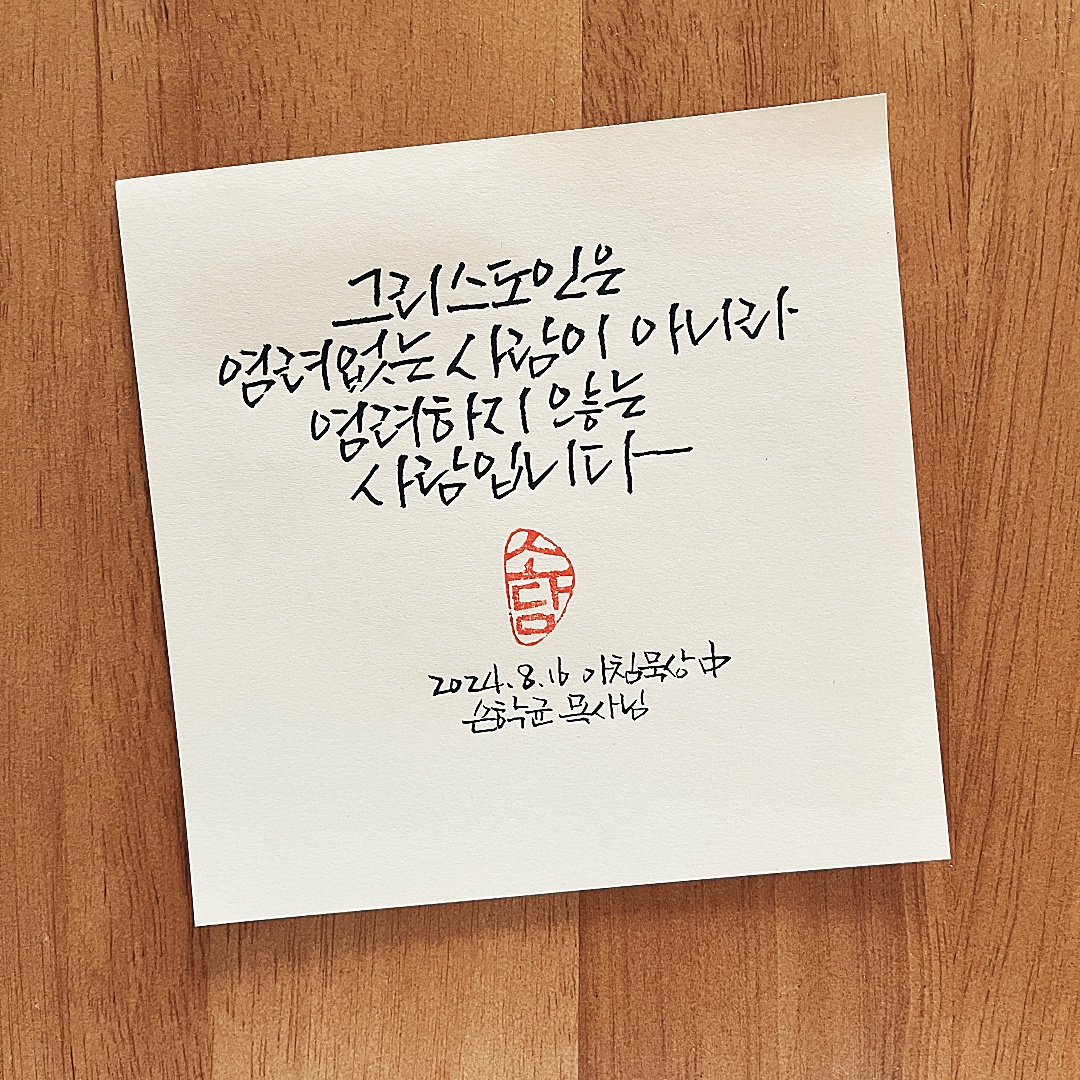 그리스도인은
염려없는 사람이 아니라
염려하지 않는
사람입니다
소담
2024.8.16 아침묵상 中
손학균 목사님